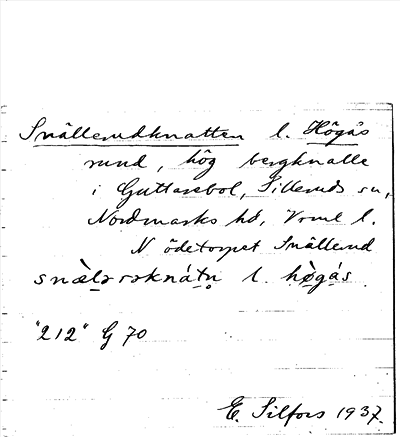 Snållerudknatten l. Högås
rund, hög bergknalle
i Guttarebol, Silleruds sn,
Nordmarks hd, Vrml l.
N ödetorpet Snållerud
snὰlərəknátn̥ l. hø̀gás.
"212" G 70
E. Silfors 1937